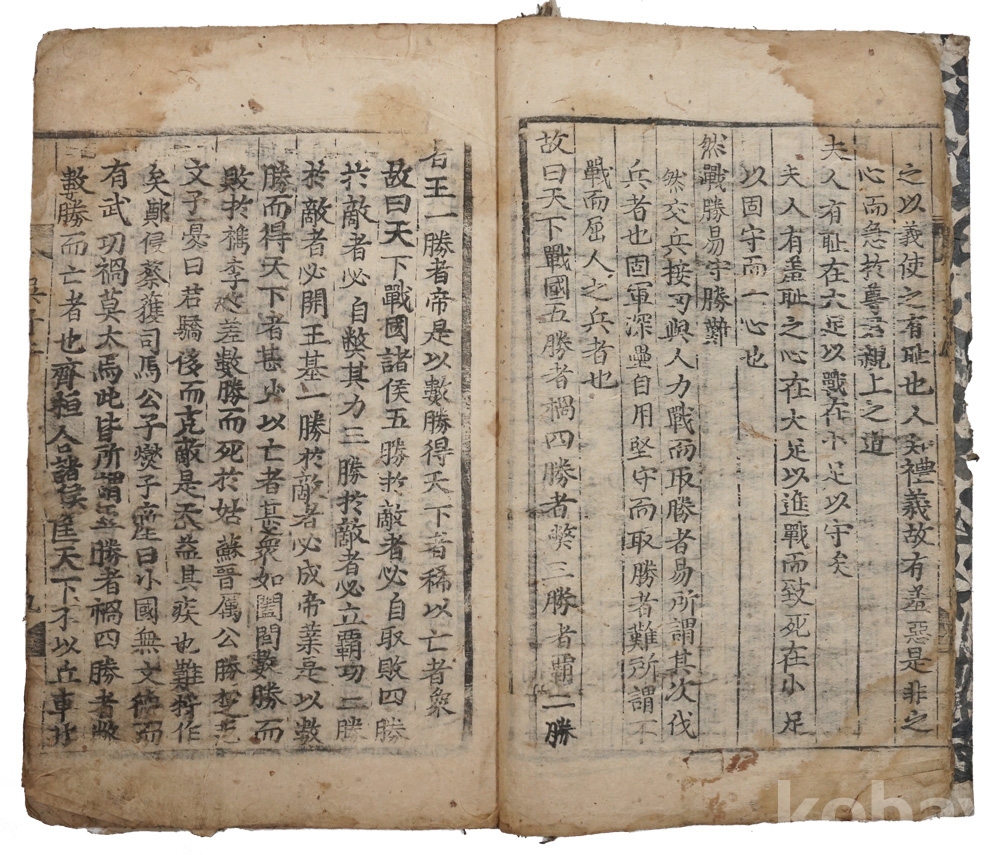 之以義使之有恥也人知禮義故有羞惡是非之
心而急於尊君親上之道
夫人有恥在大足以戰在小足以守矣
夫人有羞恥之心在大足以進戰而致死在小足
以固守而一心也
然戰勝易守勝難
然交兵接刃與人力戰而取勝者易所謂其次伐
兵者也固軍深壘自用堅守而取勝者難所謂不
戰而屈人之兵者也
故曰天下戰國五勝者禍四勝者獘三勝者霸二勝
者王一勝者帝是以數勝得天下者稀以亡者衆
故曰天下戰國諸侯五勝於敵者必自取敗四勝
於敵者必自獘其力三勝於敵者必立霸功二勝
於敵者必開王基一勝於敵者必成帝業是以數
勝而得天下者甚少以亡者甚衆如闔閭數勝而
敗於檇李夫差數勝而死於姑蘇晉厲公勝楚
文子憂曰君驕侈而克敵是天益其疾也難將作
矣鄭侵蔡獲司馬公子燮子產曰小國無文德而
有武功禍莫大焉此皆所謂五勝者禍四勝者
數勝而亡者也齊桓合諸侯匡天下不以兵車
koba